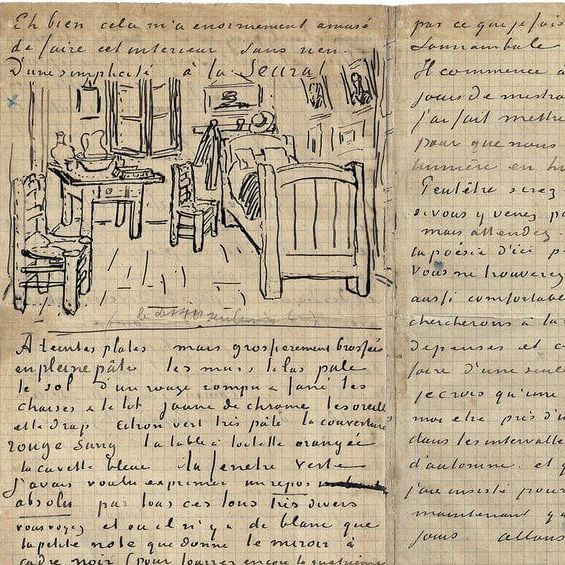 Eh bien cela m'a enormement amusé
de faire cet interieur sans rien.
D'une simplicité à la Seurat.
A teintes plates mais grossierement brossées
en pleine pâte les murs lilas pale
le sol d'un rouge rompu & fané les
chaises & le lit jaune de chrome les oreill
et le drap citron vert très pâle la couverture
rouge sang la table à toilette orangée
la cuvette bleue la fenetre verte
J'avais voulu exprimer un repos
absolu par tous ces tons très divers
vous voyez et où il n'y a de blanc que
la petite note que donne le miroir à
cadre noir (pour fourrer encore la quatrième
par ce que je fais
Somnambule
Il commence à
jours de mistra
j'ai fait mettre
pour que nous
lumière en h
Peutêtre serez
si vous y venez pa
mais attendez.
la poésie d'ici p
Vous ne trouverez
aussi comfortable
chercherons à la
depenses et c
faire d'une seule
je crois qu'une
moi etre près d'u
dans les intervalle
d'automne. et q
j'aie insisté pour
maintenant qu
jours. allons